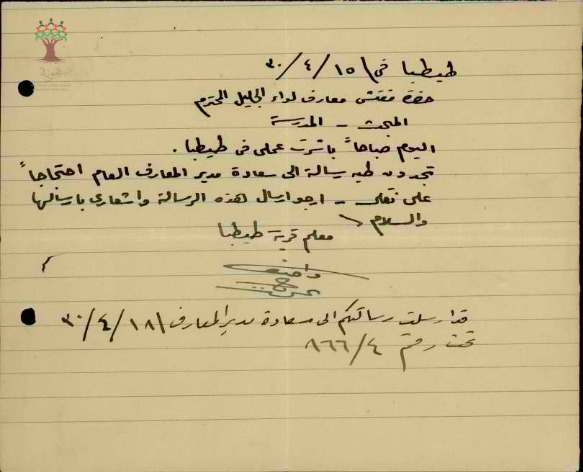 طيطبا في ١٥/٤/٣٠
حضرة مفتش معارف لواء الجليل المحترم
المبحث - المدرسة
اليوم صباحاً باشرت عملي في طيطبا.
تجدون طيه رسالة الى سعادة مدير المعارف العام احتجاجاً
على نقلي - ارجو ارسال هذه الرسالة واشعاري بارسالها
والسلام
معلم قرية طيطبا
قد ارسلت رسالتكم الى سعادة مدير المعارف ١٨/٤/٣٠
تحت رقم ٨٦٦/٤